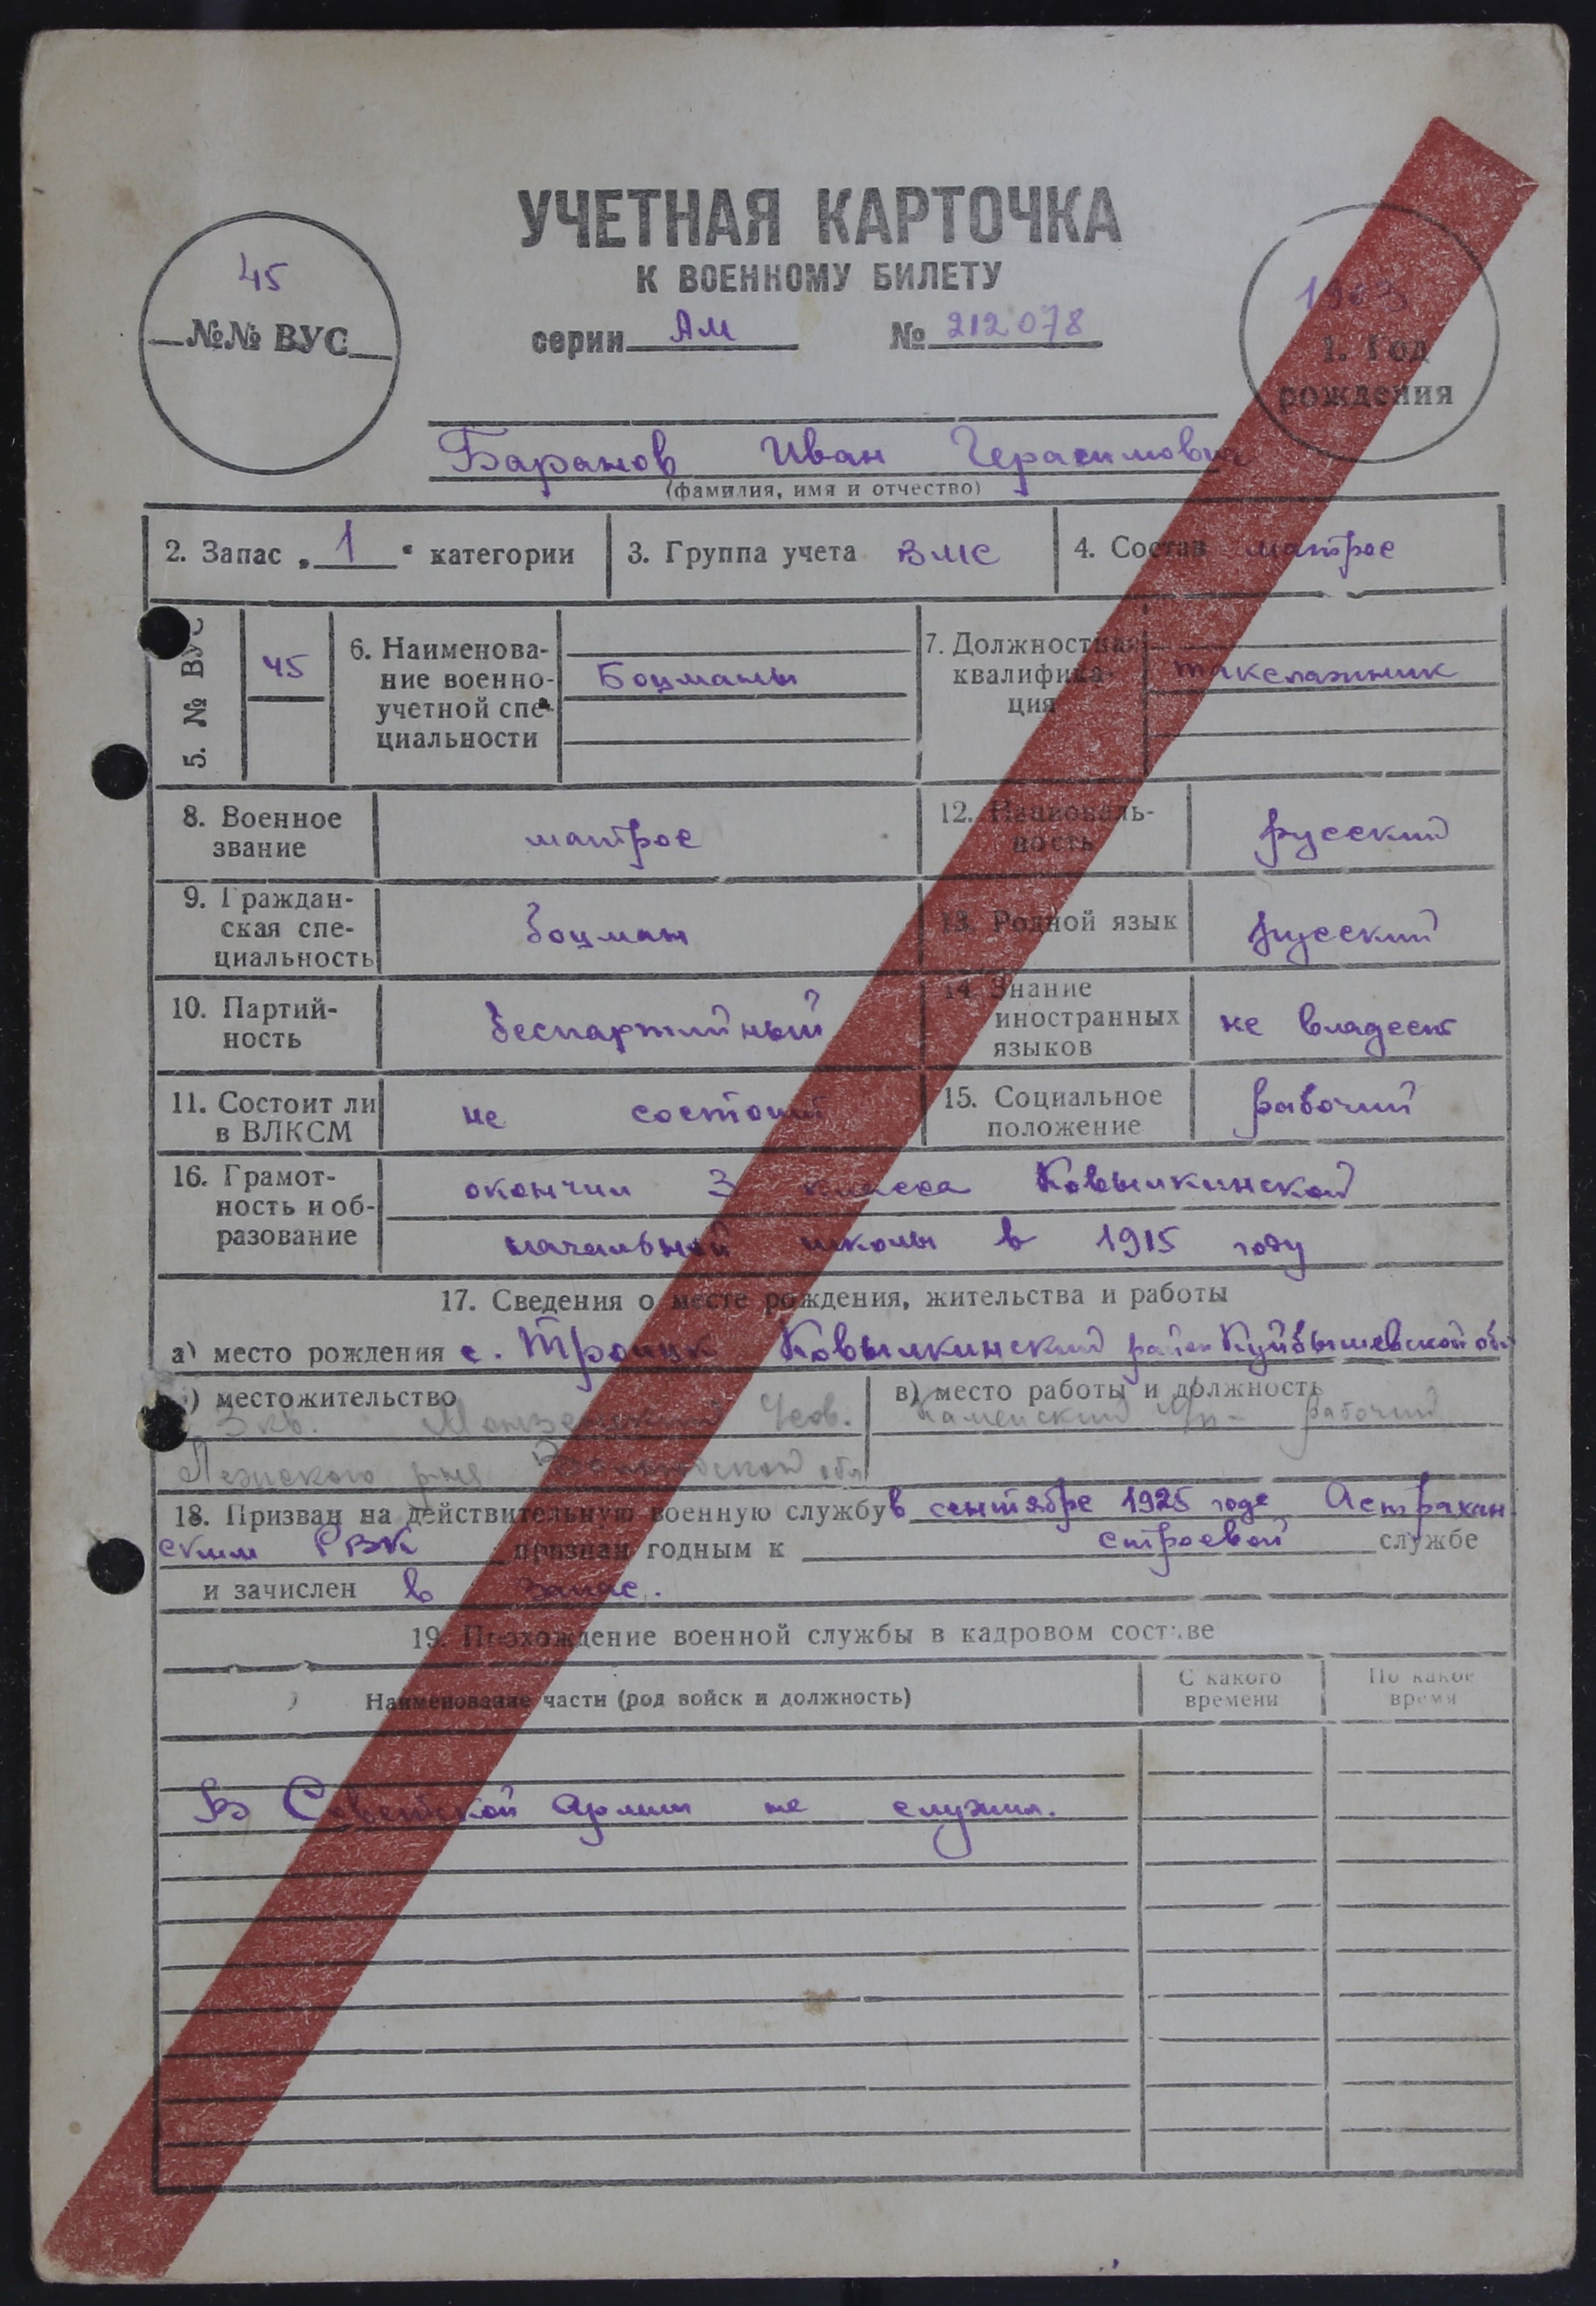 УЧЕТНАЯ КАРТОЧКА
К ВОЕННОМУ БИЛЕТУ
45
№№ ВУС
серии АМ № 212078
1903
1. Год
рождения
Баранов Иван Герасимович
(фамилия, имя и отчество)
2. Запас „1“ категории
3. Группа учета ВМС
4. Состав матрос
5. № ВУС
45
6. Наименова-
ние военно-
учетной спе-
циальности
Боцманы
7. Должностная
квалифика-
ция
такелажник
8. Военное
звание
матрос
12. Националь-
ность
русский
9. Граждан-
ская спе-
циальность
боцман
13. Родной язык
русский
10. Партий-
ность
беспартийный
14. Знание
иностранных
языков
не владеет
11. Состоит ли
в ВЛКСМ
не состоит
15. Социальное
положение
рабочий
16. Грамот-
ность и об-
разование
окончил 3 класса Ковылкинской
начальной школы в 1915 году
17. Сведения о месте рождения, жительства и работы
а) место рождения с. Троицк Ковылкинский район Куйбышевской обл
б) местожительство
3 кв.
р-на Вологодской обл
в) место работы и должность
Каменский рабочий
18. Призван на действительную военную службу в сентябре 1925 годе Астрахан
ским РВК признан годным к строевой службе
и зачислен в запас.
19. Прохождение военной службы в кадровом составе
Наименование части (род войск и должность)
С какого
времени
По какое
время
В Советской Армии не служил.